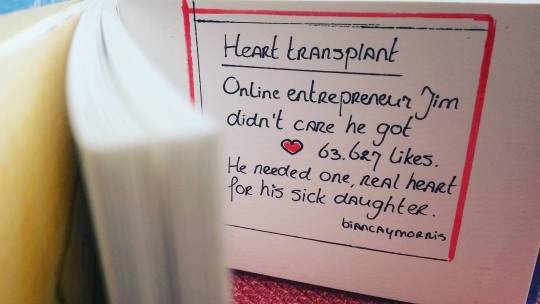 Heart transplant
Online entrepreneur Jim
didn't care he got
❤ 63.627 likes.
He needed one, real heart
for his sick daughter.
biancaymorris